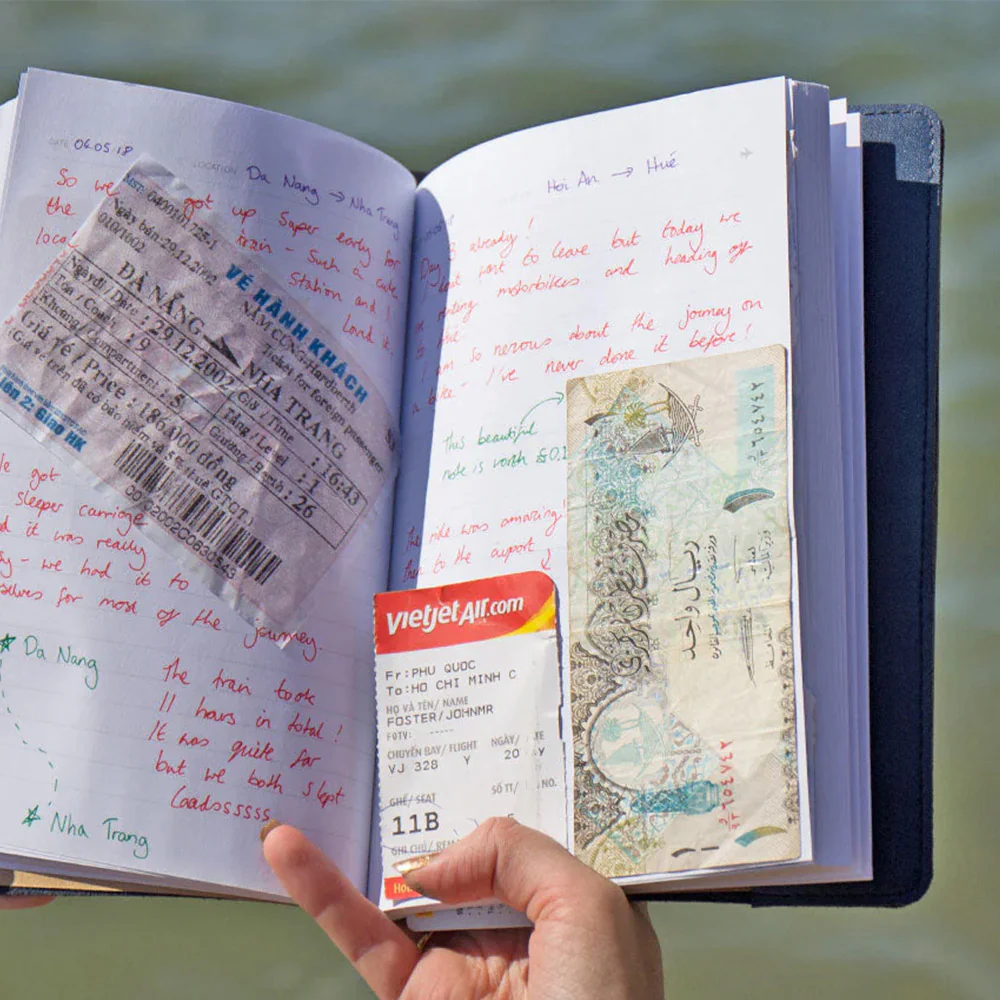 DATE 06.05.18
LOCATION Da Nang → Nha Trang
So we got up super early for
the train - Such a cute
local station and I
loved it.
MST: 0400101725-1
Ngày bán:29.12.2002
010/1602
VÉ HÀNH KHÁCH
NẰM CỨNG-Hardberth
Ticket for foreign passenger
ĐÀ NẴNG NHA TRANG
Ngày đi/ Date : 29.12.2002 Giờ / Time : 16:43
Toa / Coach : 9 Tầng / Level : 1
Khoang / Compartment : 5 Giường / Berth : 26
Giá vé / Price : 186.000 đồng
Liên 2: Giao HK
got
sleeper carriage
it was really
we had it to
for most of the journey.
Da Nang
The train took
11 hours in total!
It was quiet far
but we both slept
Loadsssss
Nha Trang
Hoi An → Hué
Day 3 already!
want to leave but today we
renting motorbikes and heading off
so nervous about the journey on
a bike - I've never done it before!
This beautiful
note is worth £0.1
the ride was amazing!
then to the airport
ريال واحد
١
٢٦٥٤٧٤٢
١
٢٦٥٤٧٤٢
١
vietjetAir.com
Fr:PHU QUOC
To:HO CHI MINH C
HỌ VÀ TÊN/ NAME
FOSTER/JOHNMR
FQTV: -----
CHUYẾN BAY/ FLIGHT NGÀY/
VJ 328 Y 20
GHẾ/ SEAT SỐ TT/ NO.
11B
GHI CHÚ/